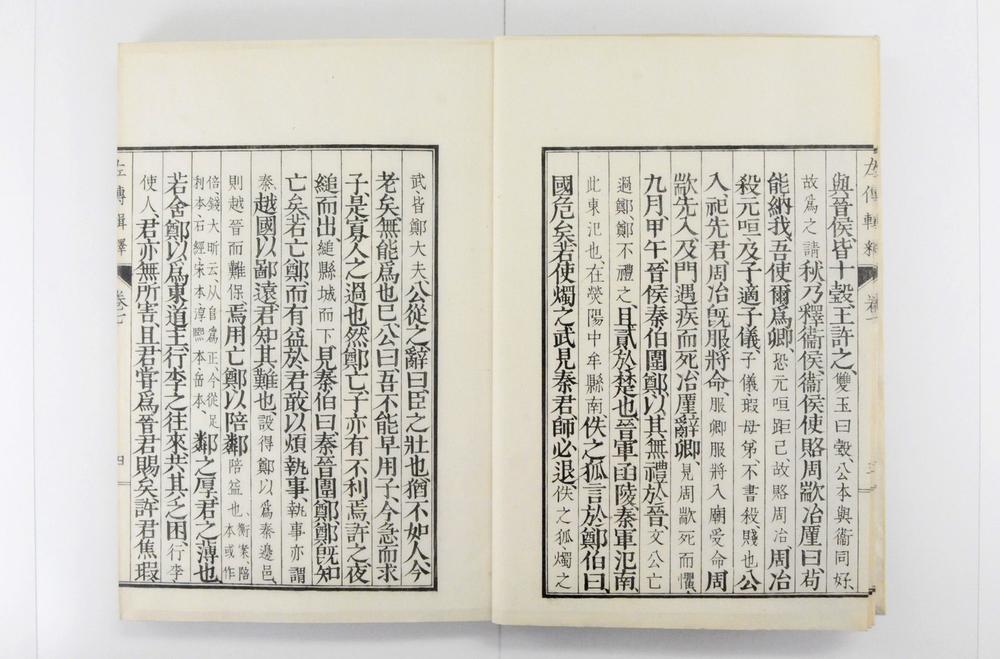 與晉侯皆十瑴、王許之、雙玉曰瑴、公本與衞同好、
故爲之請秋乃釋衞侯、衞侯使賂周歂冶厪曰苟
能納我、吾使爾爲卿、恐元咺距己、故賂周冶、周冶
殺元咺及子適子儀、子儀瑕母弟、不書殺、賤也、公
入、祀先君、周冶既服將命、服卿服將入廟受命、周
歂先入及門遇疾而死、冶厪辭卿、見周歂死而懼、
九月甲午、晉侯秦伯圍鄭、以其無禮於晉、文公亡
過鄭、鄭不禮之、且貳於楚也、晉軍函陵、秦軍氾南、
此東氾也、在熒陽中牟縣南、佚之狐言於鄭伯曰、
國危矣、若使燭之武見秦君、師必退、佚之狐燭之
武、皆鄭大夫、公從之、辭曰、臣之壯也猶不如人、今
老矣、無能爲也已、公曰、吾不能早用子、今急而求
子、是寡人之過也、然鄭亡、子亦有不利焉、許之、夜
縋而出、縋縣城而下、見秦伯曰、秦晉圍鄭、鄭既知
亡矣、若亡鄭而有益於君、敢以煩執事、執事亦謂
秦、越國以鄙遠、君知其難也、設得鄭以爲秦邊邑、
則越晉而難保、焉用亡鄭以陪鄰、陪益也、衡案、陪本或作
倍、錢大昕云、从𨸏爲正、今從足利本、石經宋本淳熙本岳本、鄰之厚、君之薄也、
若舍鄭以爲東道主、行李之往來、共其乏困、行李
使人、君亦無所害、且君嘗爲晉君賜矣、許君焦瑕
左傳輯釋
卷七
四
左傳輯釋